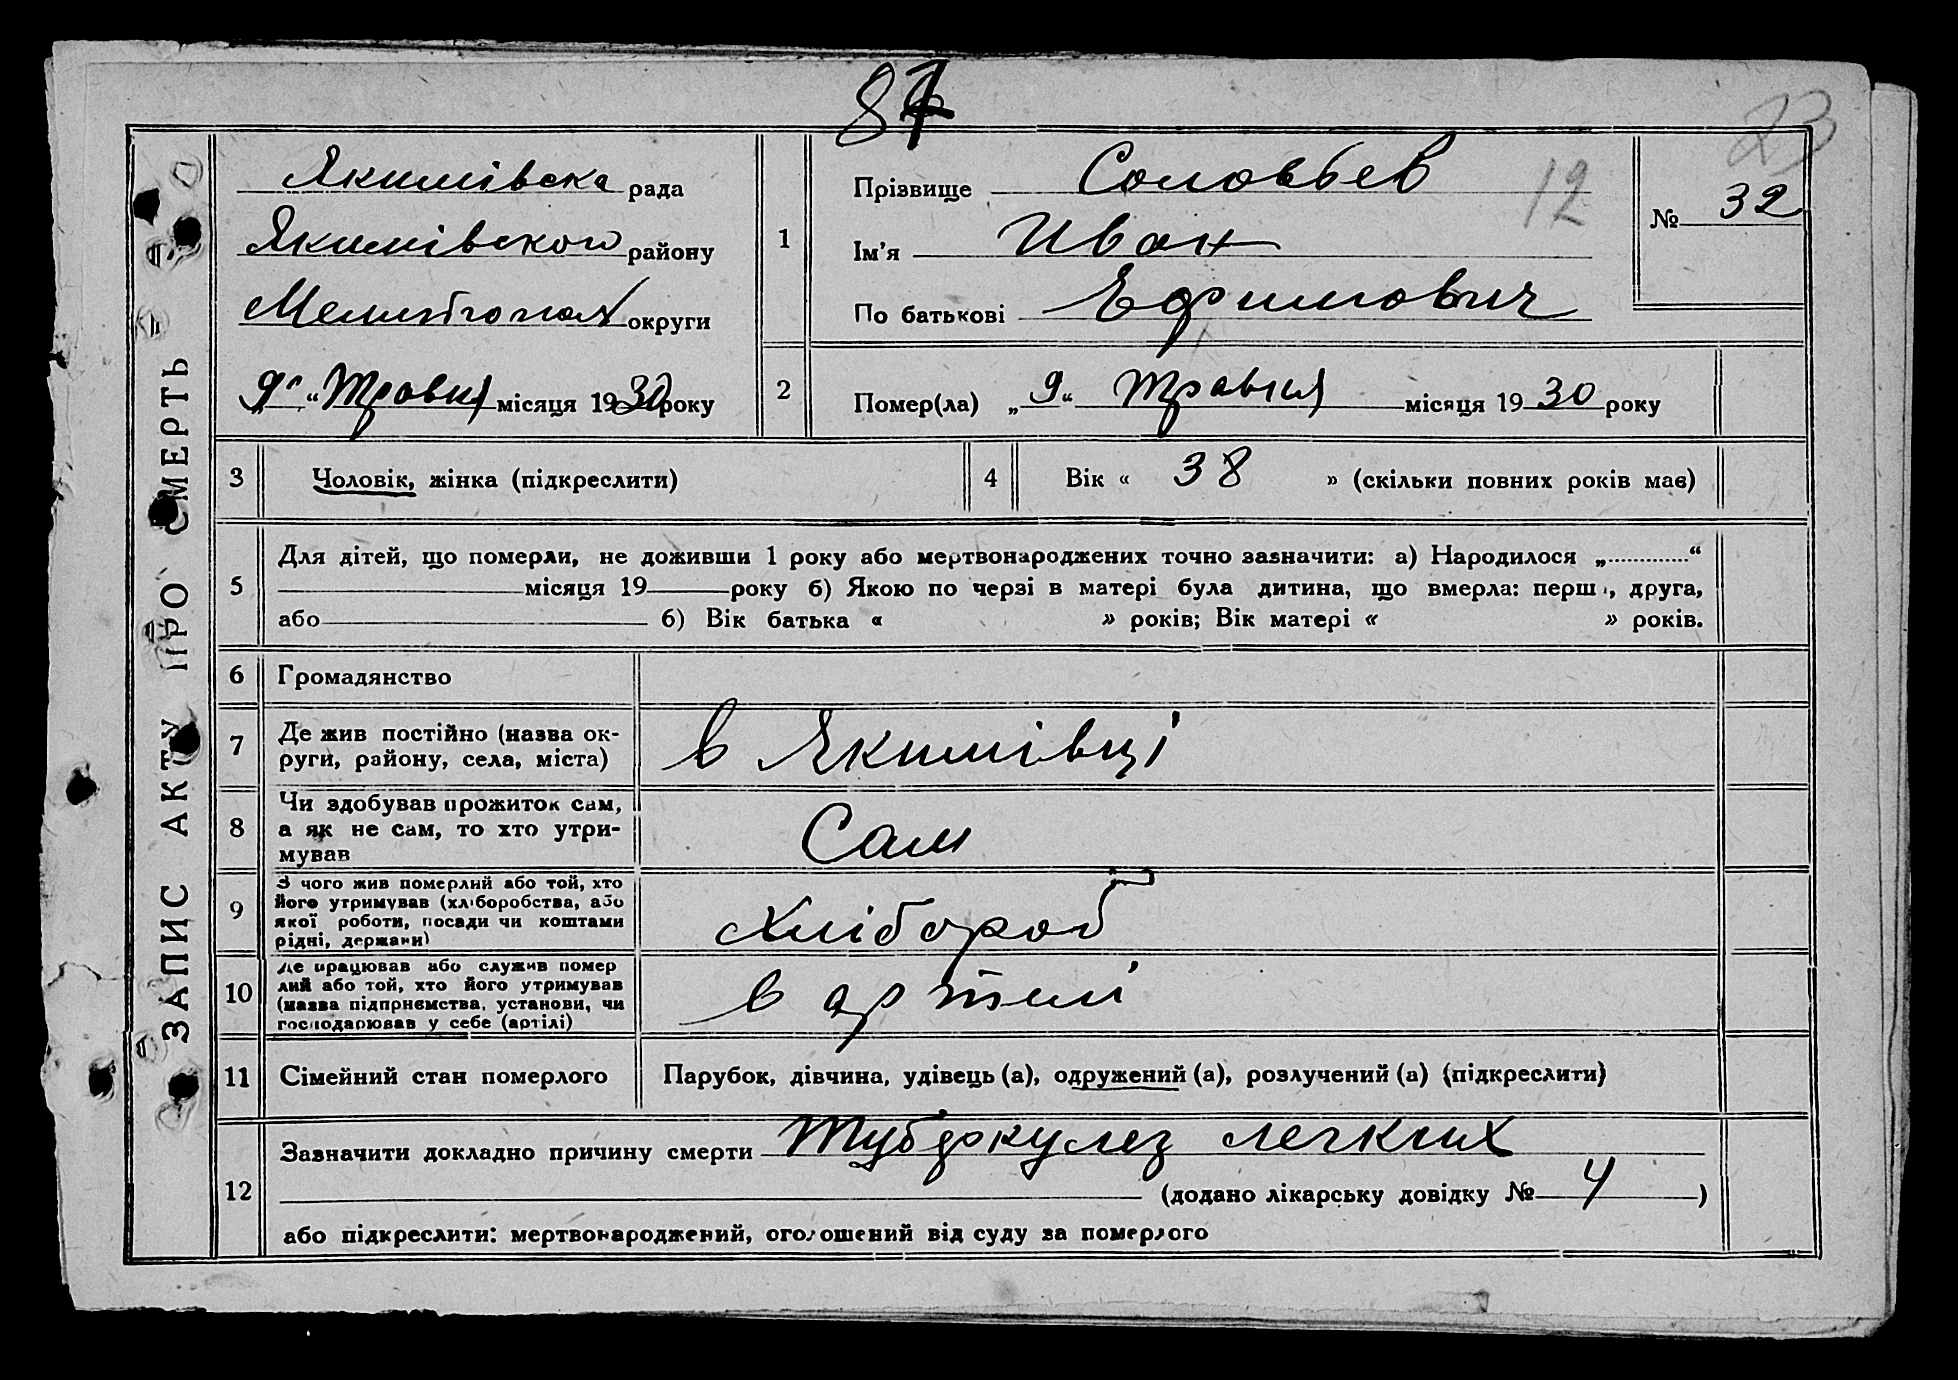 23
ЗАПИС АКТУ ПРО СМЕРТЬ
Якимівска рада
Якимівского району
округи
„9“ Травня місяця 1930 року
1
Прізвище Соловьев
12
Ім'я Иван
По батькові Ефимович
№ 32
2
Помер(ла) „9“ Травня місяця 1930 року
3 Чоловік, жінка (підкреслити)
4 Вік « 38 » (скільки повних років має)
5
Для дітей, що померли, не доживши 1 року або мертвонароджених точно зазначити: а) Народилося „ “
місяця 19 року б) Якою по черзі в матері була дитина, що вмерла: перш , друга,
або б) Вік батька « » років; Вік матері « » років.
6 Громадянство
7
Де жив постійно (назва ок-
руги, району, села, міста)
в Якимівці
8
Чи здобував прожиток сам,
а як не сам, то хто утри-
мував
Сам
9
З чого жив померлий або той, хто
його утримував (хліборобства, або
якої роботи, посади чи коштами
рідні, держави)
Хлібороб
10
Де працював або служив помер
лий або той, хто його утримував
(назва підприємства, установи, чи
господарював у себе (артілі)
в артилі
11 Сімейний стан померлого
Парубок, дівчина, удівець (а), одружений (а), розлучений (а) (підкреслити)
12
Зазначити докладно причину смерти Тубэркулез легких
(додано лікарську довідку № 4 )
або підкреслити: мертвонароджений, оголошений від суду за померлого